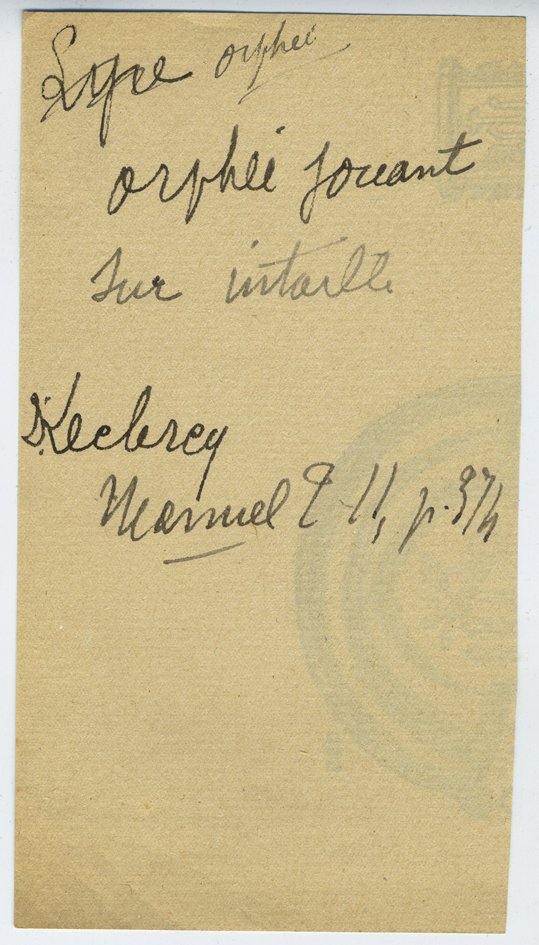 Lyre orphée
orphée jouant
sur intaille
D. Leclercq
Manuel T. II, p. 374